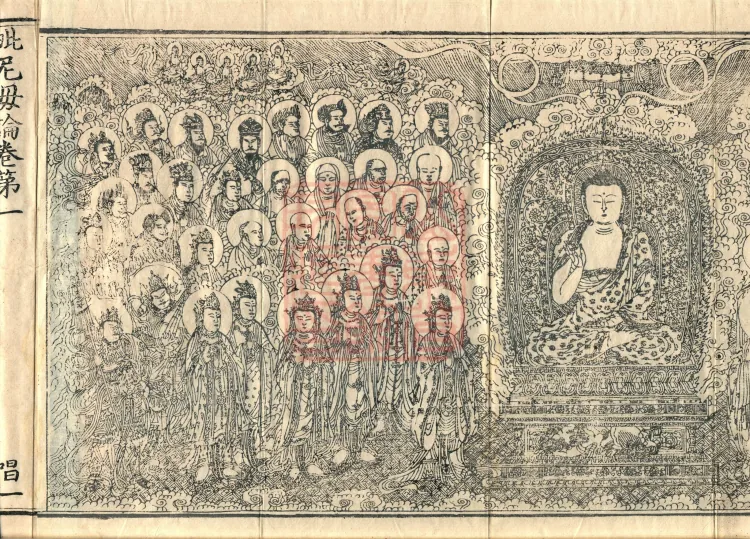 毗尼毋論卷第一
唱一